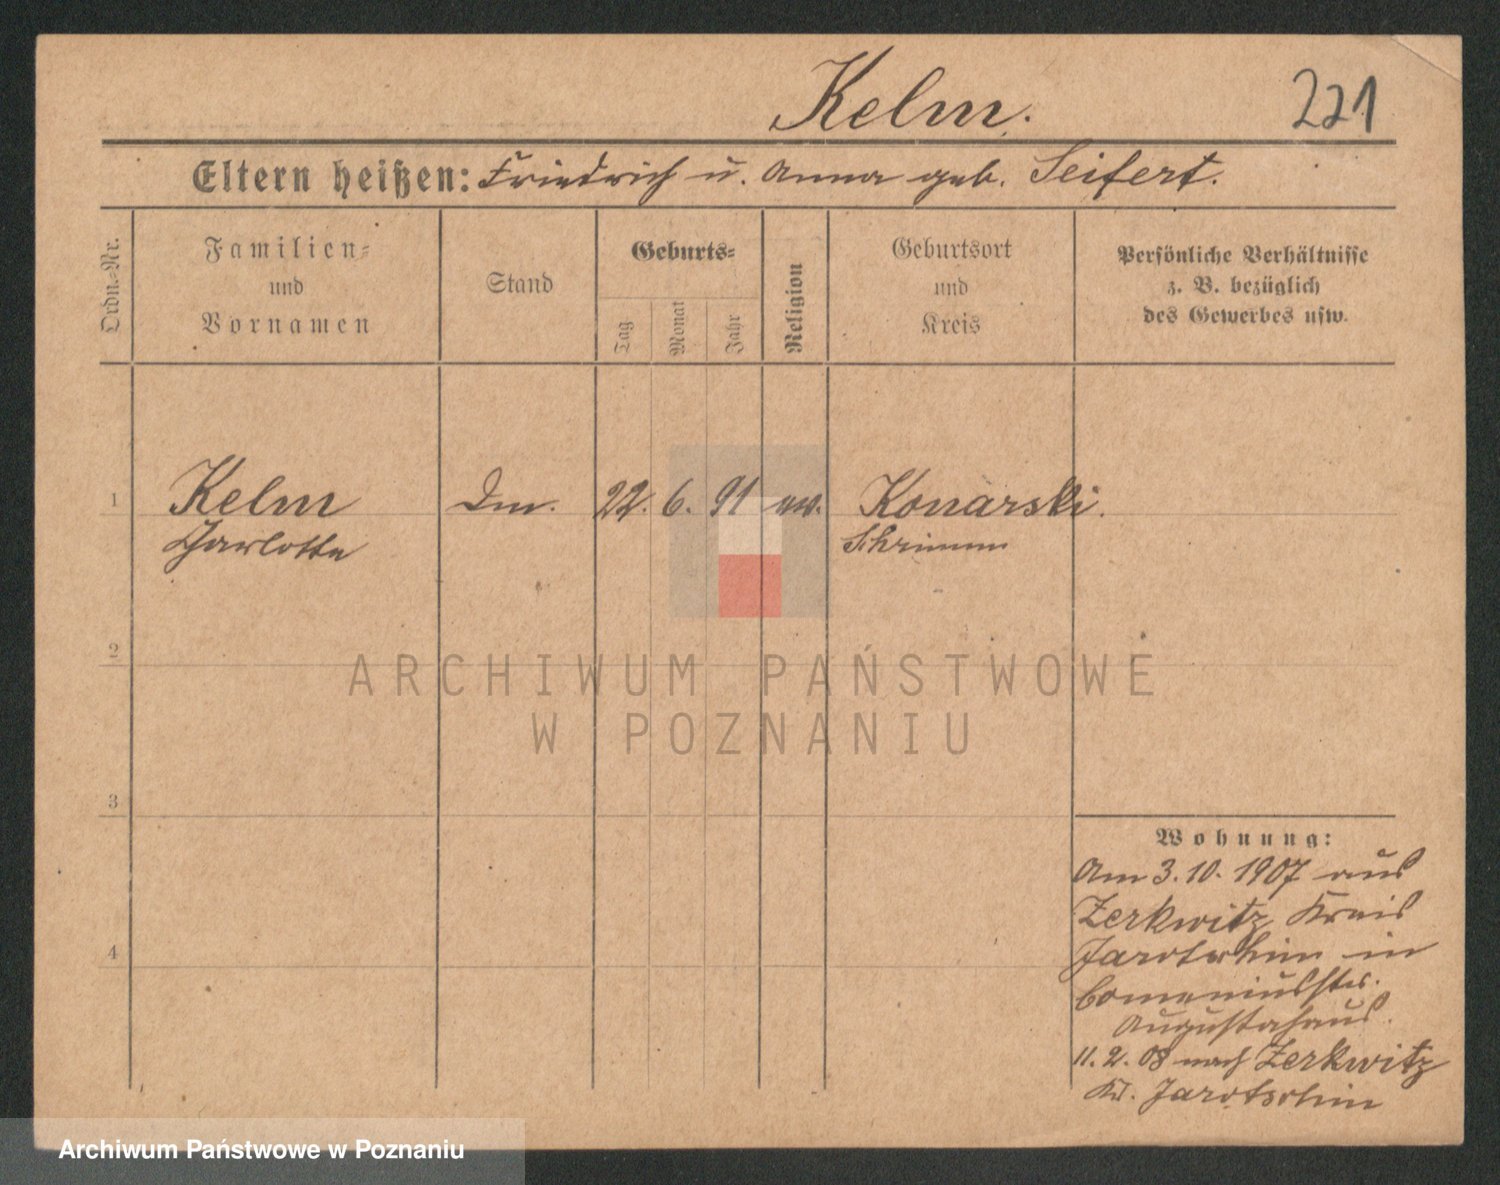 Kelm.
221
Eltern heißen: Friedrich u. Anna geb. Seifert.
Ordn.-Nr.
Familien-
und
Vornamen
Stand
Geburts-
Tag
Monat
Jahr
Religion
Geburtsort
und
Kreis
Persönliche Verhältnisse
z. B. bezüglich
des Gewerbes usw.
1 Kelm 22. 6. 91 ev. Konarski.
Charlotte Schrimm
2
ARCHIWUM PAŃSTWOWE
W POZNANIU
3
4
Wohnung:
Am 3. 10. 1907 aus
Zerkwitz Kreis
Jarotschin in
Comeniusstr.
Augustahaus.
11. 2. 08 nach Zerkwitz
Kr. Jarotschin
Archiwum Państwowe w Poznaniu